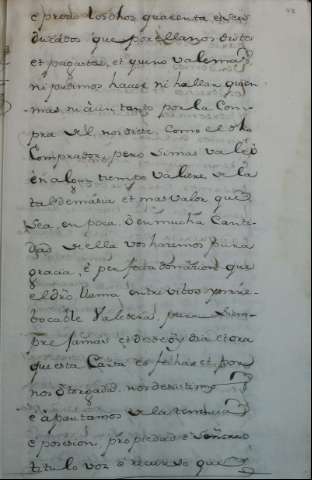 e presio los dhos quarenta e seis
ducados que por ellanos disteis
et pagasteis, et que no vale mas
ni pudimos hauer ni hallar quien
mas ni aun tanto por la Com-
pra del nos diese, como el dho
Comprador, pero si mas vale o
en algun tiempo valiere de la
tal demasia et mas valor que
sea, en poca, o en mucha Canti-
dad de ella vos haremos pura
gracia, e perfecta donacion que
el dro llama entre vibos yrrre-
bocable valedera para siem-
pre jamas et desde oy dia et ora
que esta Carta es fecha et por
nos otorgada, nos desistimos
e apartamos de la tenencia
e posesion, propiedad e señorio
titulo voz e recurso que